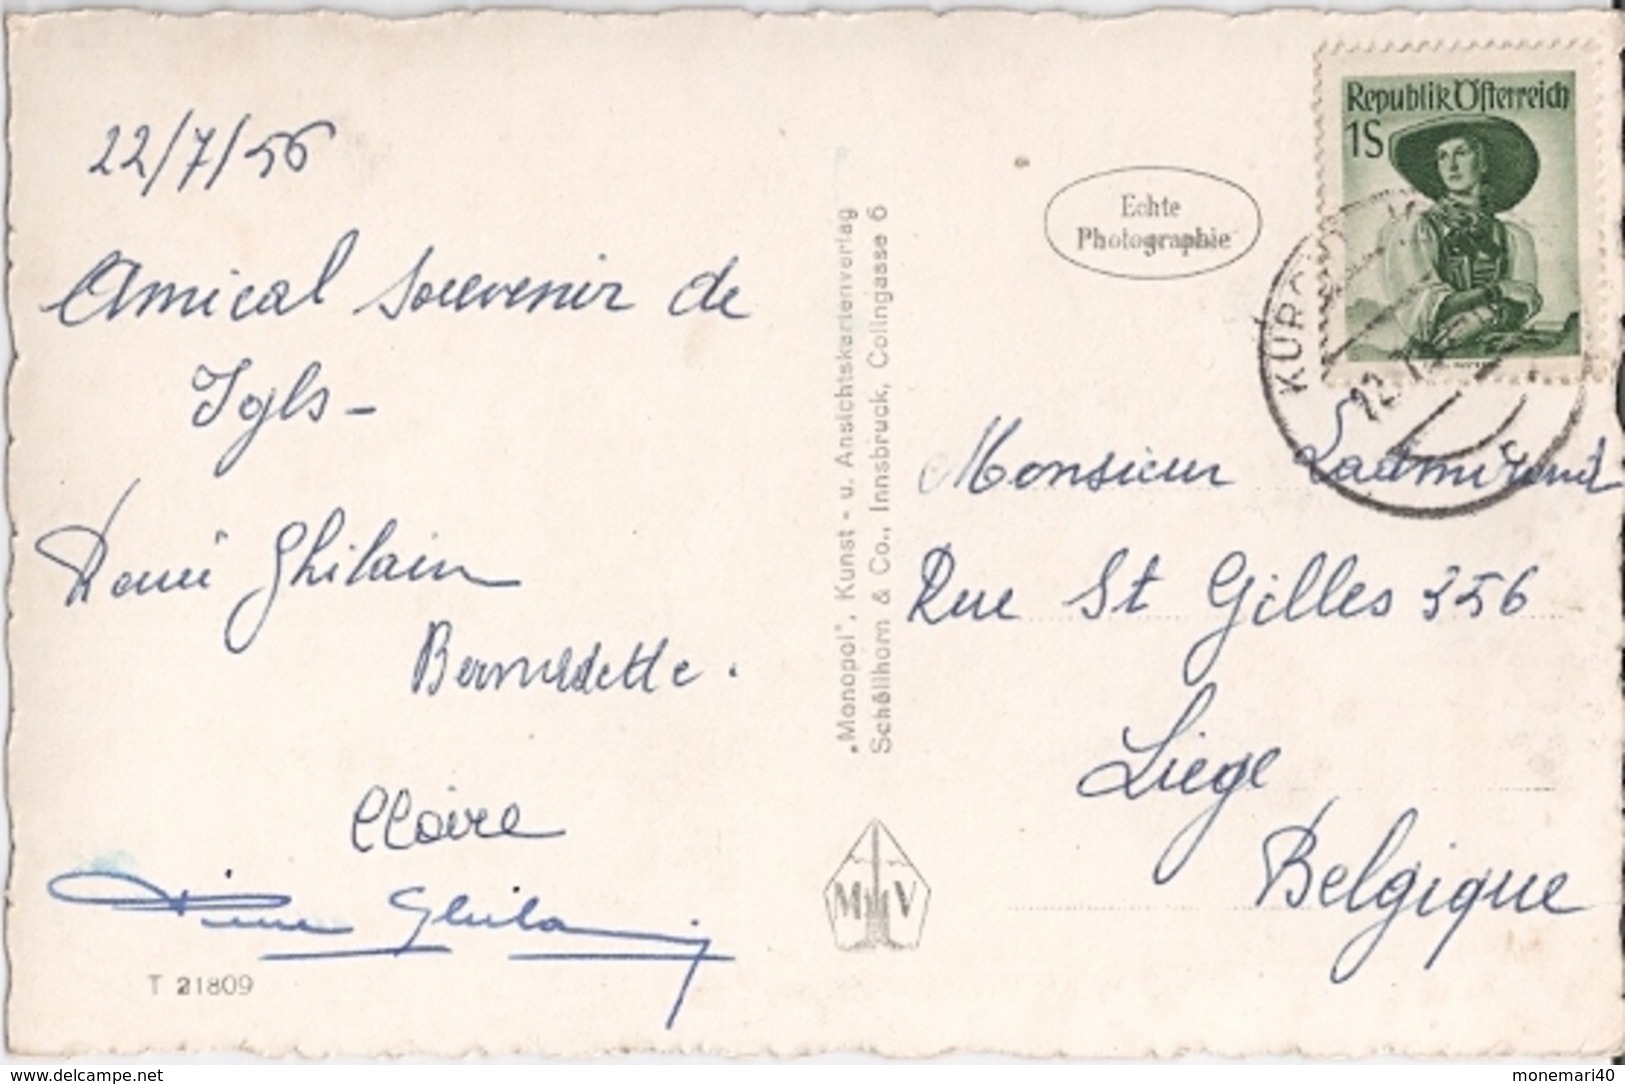 22/7/56
Amical souvenir de
Igls -
René Ghilain
Bernadette.
Claire
Ghilain
T 21809
"Monopol", Kunst - u. Ansichtskartenverlag
Schöllhorn & Co., Innsbruck, Colingasse 6
M V
Echte
Photographie
Republik Österreich
1S
22. 7.
Monsieur
Rue St Gilles 356
Liege
Belgique
www.delcampe.net
monemari40